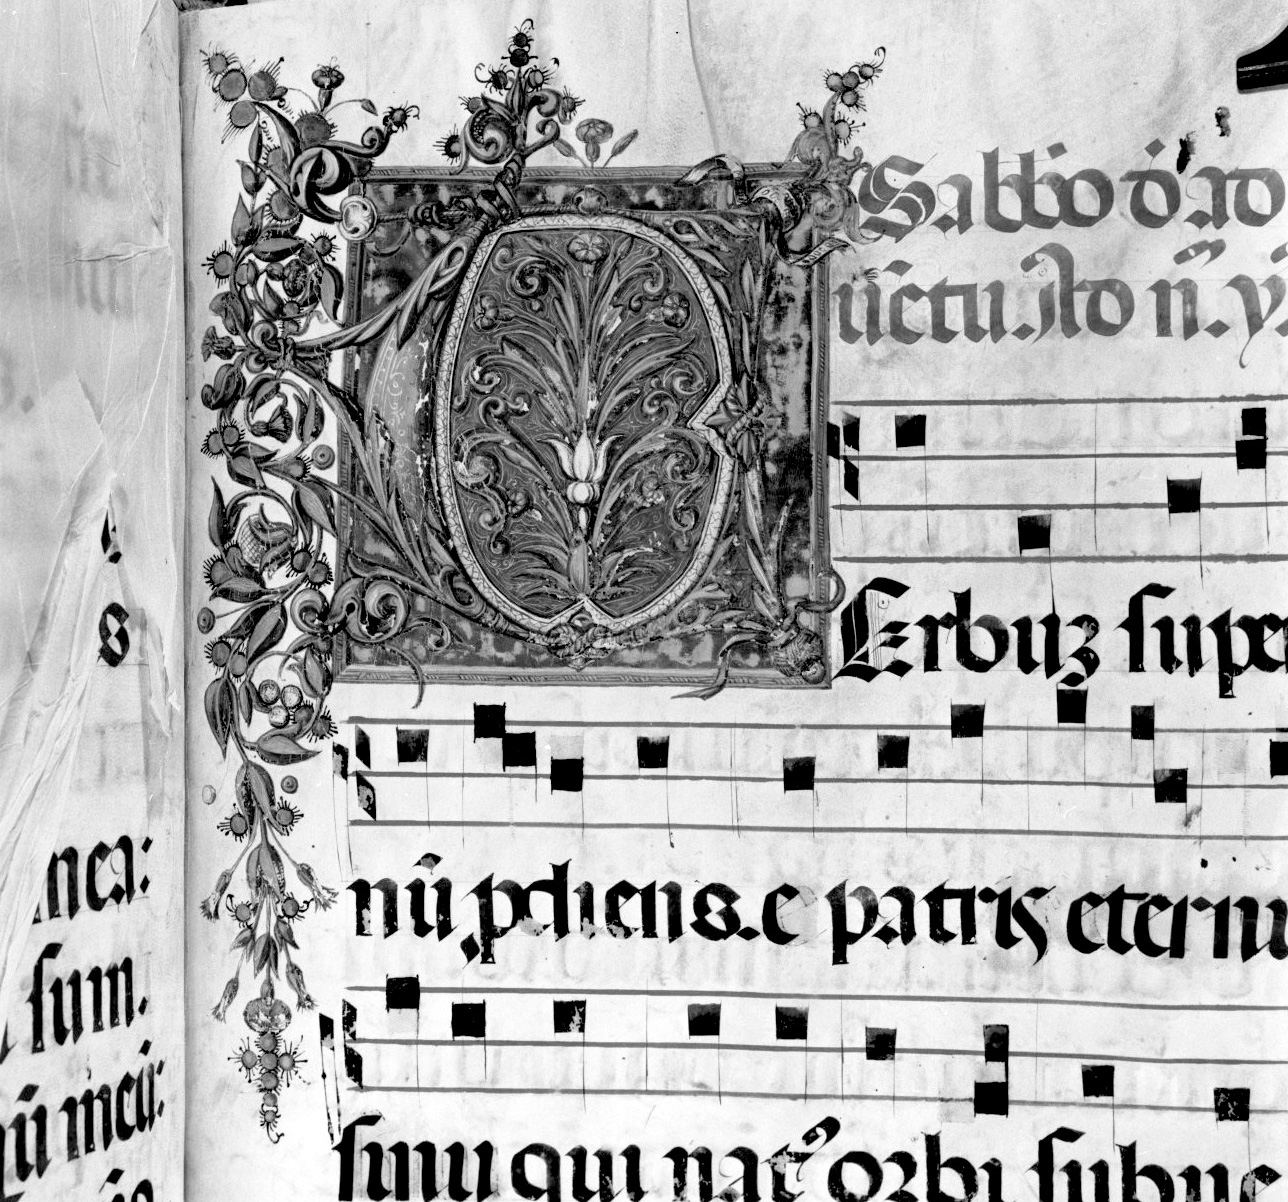 Sabbo d' ad
uētu. īto n̄. ym
VErbuz supe
nū pdiens. e patris eternu
sinu qui nat' orbi subue
s
mea:
sum.
ū meū: